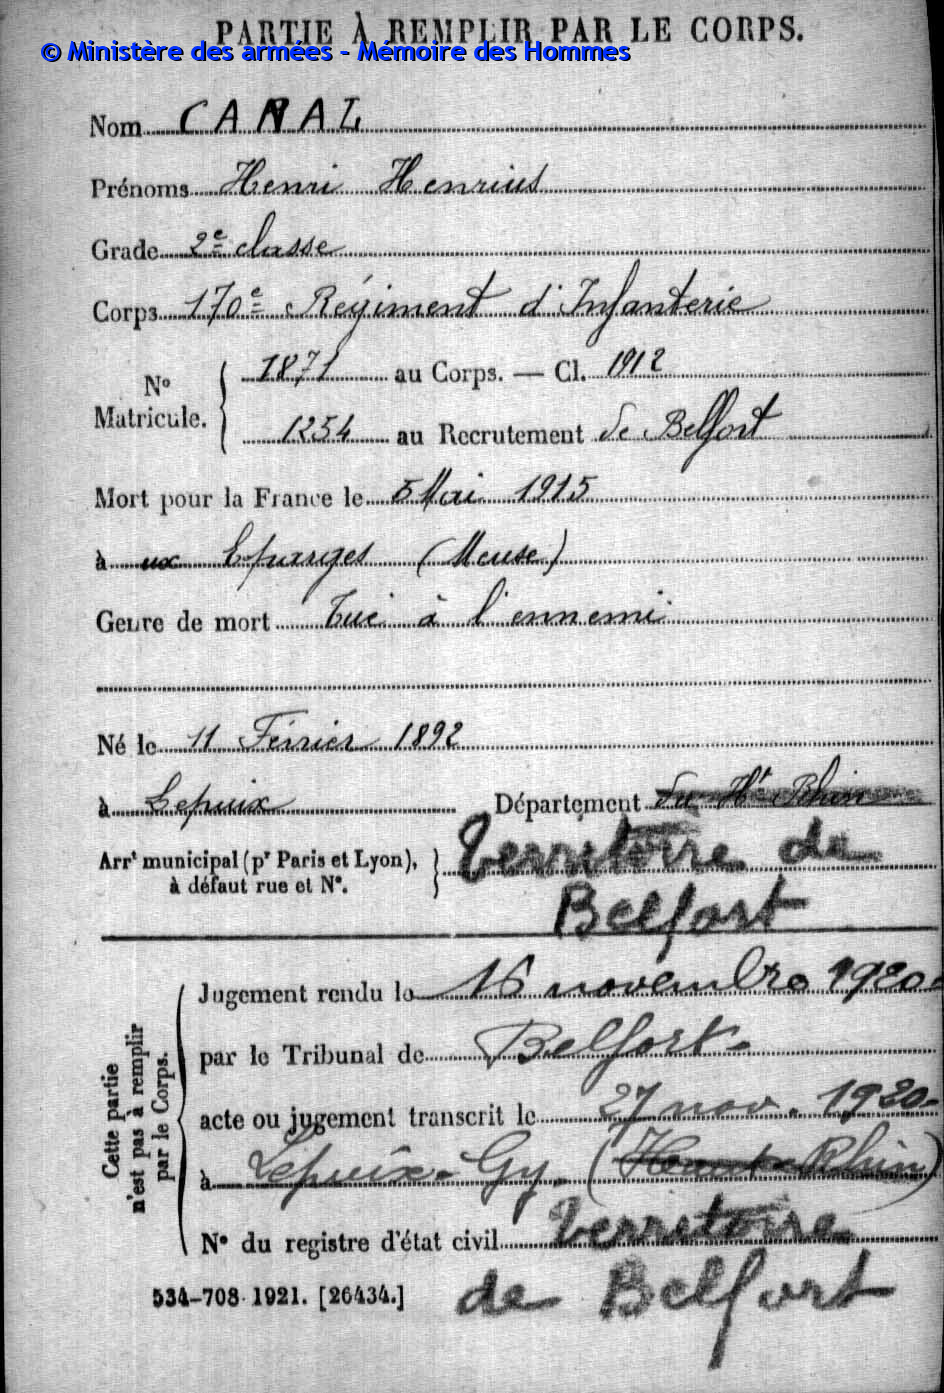 PARTIE À REMPLIR PAR LE CORPS.
© Ministère des armées - Mémoire des Hommes
Nom CARAL
Prénoms Henri Henrius
Grade 2e classe
Corps 170e Régiment d'Infanterie
N° Matricule. 1871 au Corps. — Cl. 1912
1254 au Recrutement de Belfort
Mort pour la France le 5 Mai 1915
à ux Eparges (Meuse)
Genre de mort Tué à l'ennemi
Né le 11 Février 1892
à Lepuix Département du Ht Rhin
Territoire de
Arrt municipal (pr Paris et Lyon),
à défaut rue et N°.
Belfort
Cette partie
n'est pas à remplir
par le Corps.
Jugement rendu le 16 novembre 1920-
par le Tribunal de Belfort-
acte ou jugement transcrit le 27 nov. 1920-
à Lepuix-Gy. (Haut-Rhin)
N° du registre d'état civil Territoire
de Belfort
534-708-1921. [26434.]